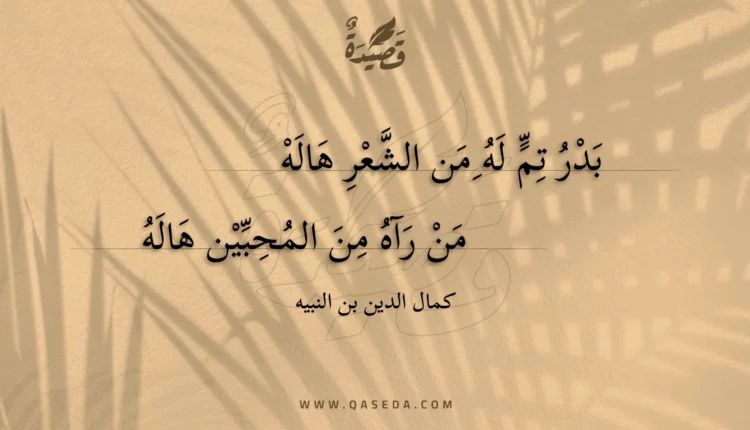 قَصِيْدَةٌ
بَدْرُ تِمٍّ لَهُ ِمَن الشَّعْرِ هَالَهْ
مَنْ رَآهُ مِنَ المُحِبِّيْن هَالَهُ
كمال الدين بن النبيه
WWW.QASEDA.COM